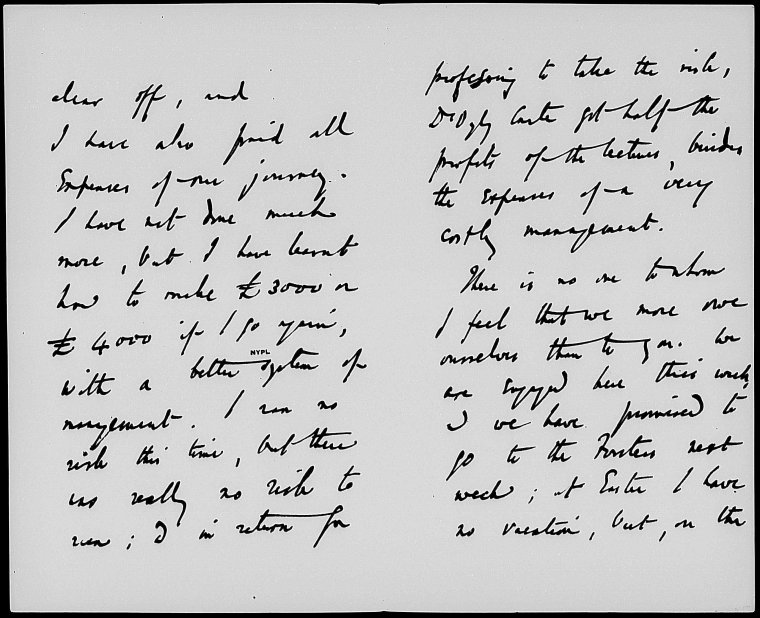 clear off, and
I have also paid all
Expenses of our journey.
I have not done much
more, but I have learnt
how to make £3000 or
£4000 if I go again,
with a better system of
NYPL
management. I ran no
risk this time, but there
was really no risk to
run; & in return for
professing to take the risk,
D'Oyly Carte got half the
profits of the lectures, besides
the expenses of a very
costly management.
There is no one to whom
I feel that we more owe
ourselves than to you. We
are engaged here this week,
& we have promised to
go to the Forsters next
week; at Easter I have
no vacation, but, on the